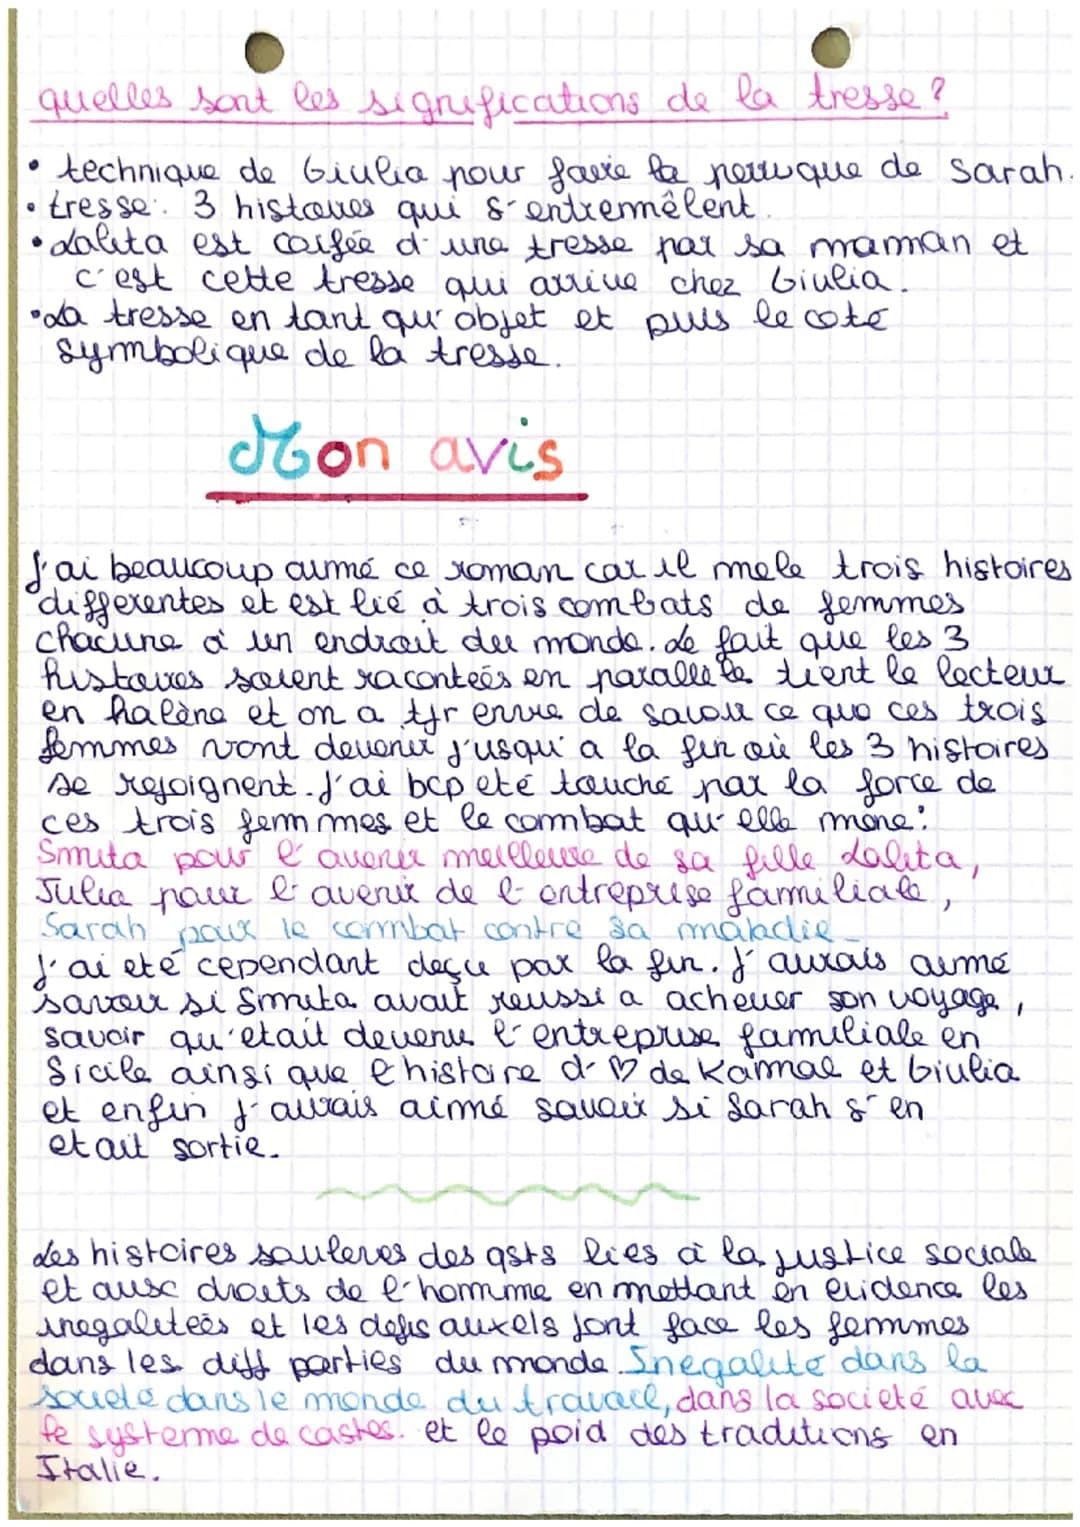 quelles sont les significations de la tresse?
• technique de Giulia pour faire la perruque de Sarah.
• tresse: 3 histoires qui s'entremêlent.
• Lalita est coifée d'une tresse par sa maman et
c'est cette tresse qui arrive chez Giulia.
• La tresse en tant qu'objet et puis le coté
symbolique de la tresse.
Mon avis
J'ai beaucoup aimé ce roman car il mele trois histoires
differentes et est lié à trois combats de femmes
chacune à un endroit du monde. Le fait que les 3
histoires soient racontées en parallèle tient le lecteur
en halène et on a tjr envie de savoir ce que ces trois
femmes vont devenir j'usqu'a la fin où les 3 histoires
se rejoignent. J'ai bcp eté touché par la force de
ces trois femmes et le combat qu'elle mène:
Smita pour l'avenir meilleure de sa fille Lalita,
Julia pour l'avenir de l'entreprise familiale,
Sarah pour le combat contre sa maladie.
J'ai eté cependant deçu par la fin. J'aurais aimé
savoir si Smita avait reussi a achever son voyage,
savoir qu'etait devenu l'entreprise familiale en
Sicile ainsi que l'histoire d'♡ de Kamal et Giulia
et enfin j'aurais aimé savoir si Sarah s'en
etait sortie.
Les histoires souleves des qsts lies à la justice sociale
et aux droits de l'homme en mettant en evidence les
inegalitées et les defis auxels font face les femmes
dans les diff parties du monde. Inegalité dans la
societe dans le monde du travail, dans la societé avec
le systeme de castes. et le poid des traditions en
Italie.